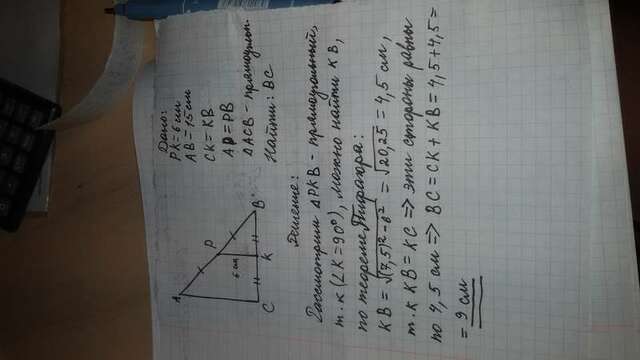 Дано:
PK=6 см
AB=15 см
CK=KB
AP=PB
△ACB - прямоугол.
Найти: BC
A
P
6 см
C
K
B
Решение:
Рассмотрим △PKB - прямоугольный,
т.к (∠K=90°), можно найти KB,
по теореме Пифагора:
KB = √(7,5)²-6² = √20,25 = 4,5 см,
т.к KB = KC => эти стороны равны
по 4,5 см => BC = CK + KB = 4,5+4,5=
= 9 см